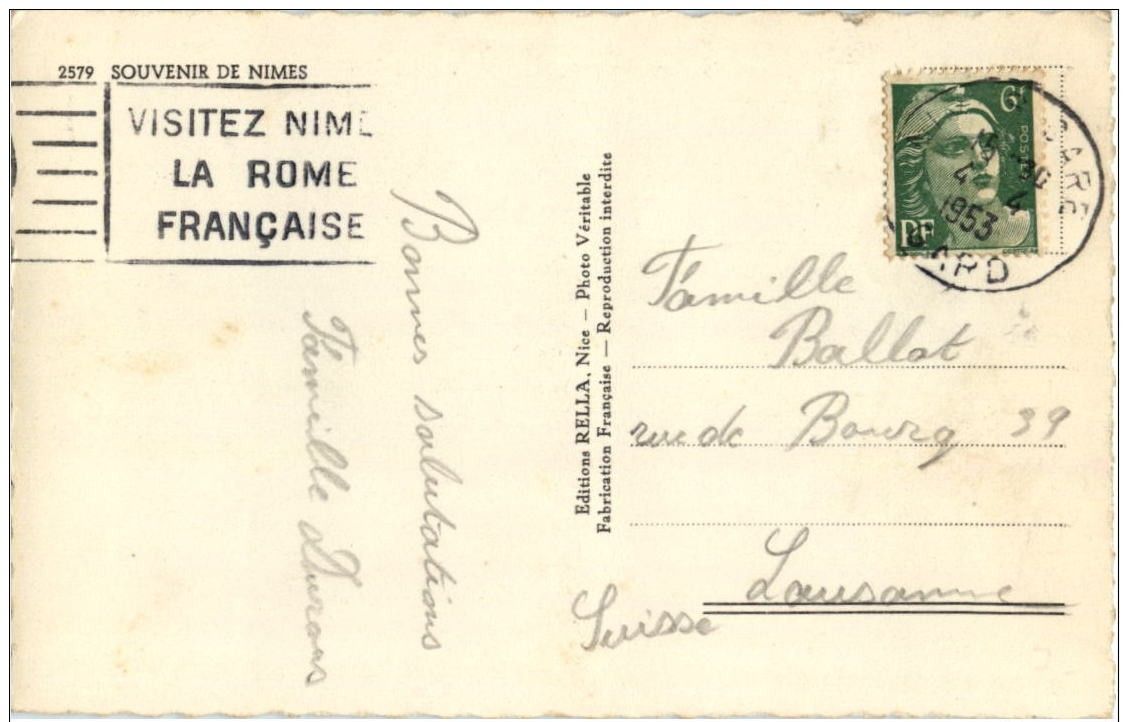 2579 SOUVENIR DE NIMES
VISITEZ NIME
LA ROME
FRANÇAISE
Bonnes salutations
Famille
Editions RELLA, Nice — Photo Véritable
Fabrication Française — Reproduction interdite
6F
POS
RF
GARE
15 30
4 4
1953
GARD
Famille
Ballat
rue de Bourg 39
Lausanne
Suisse